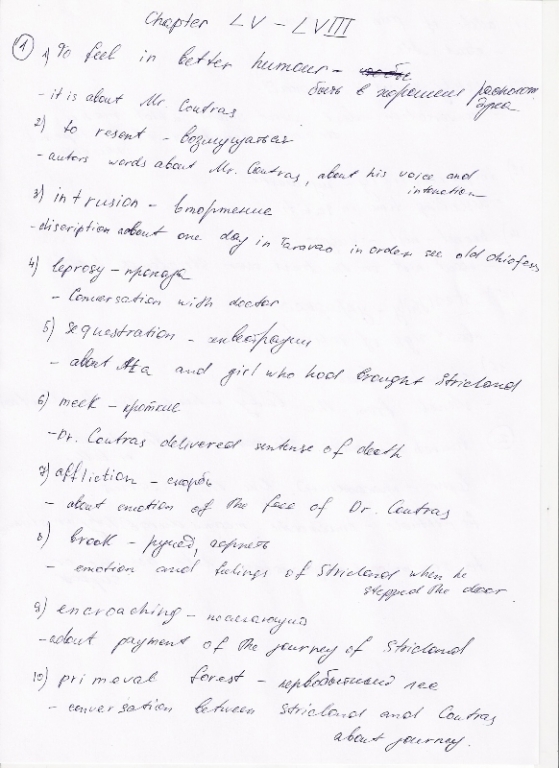 Chapter LV – LVIII
1 1) To feel in better humour –
быть в хорошем располож.
духа
- it is about Mr. Coutras
2) to resent – возмущаться
- autors words about Mr. Coutras, about his voice and
intonation
3) intrusion – вторжение
- discription about one day in Taravao in order see old chiefess
4) leprosy – проказа
- Conversation with doctor
5) sequestration –
- about Ata and girl who had brought Stricland
6) meek – кроткие
- Dr. Coutras delivered sentense of death
7) affliction – скорбь
- about emotion of the face of Dr. Coutras
8) brook – ручей, терпеть
- emotion and feelings of Stricland when he
stepped the door.
9) encroaching –
- about payment of the journey of Stricland
10) primeval forest – первобытный лес
- conversation between Stricland and Coutras
about journey.